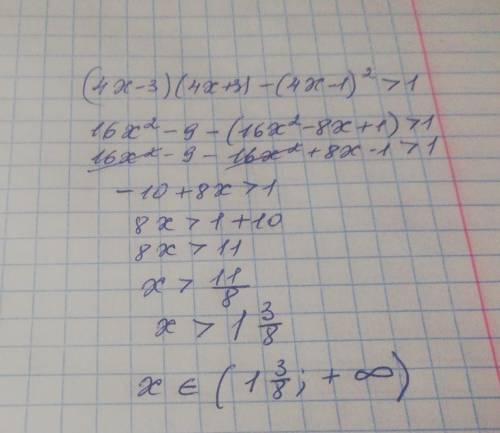 (4x-3)(4x+3)-(4x-1)²>1
16x²-9-(16x²-8x+1)>1
16x²-9-16x²+8x-1>1
-10+8x>1
8x>1+10
8x>11
x>11/8
x>1 3/8
x∈(1 3/8;+∞)